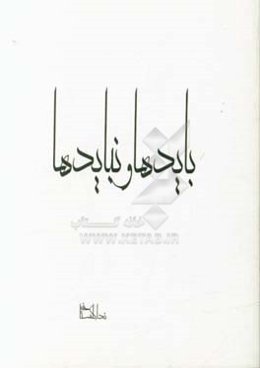 بایدها و نبایدها
خانه کتاب
WWW.KETAB.IR